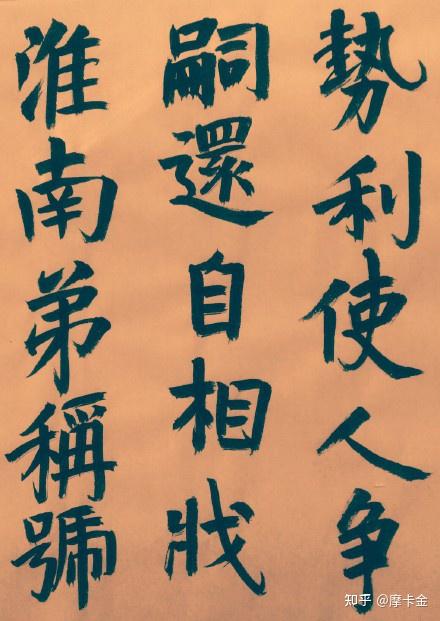 勢利使人争
嗣還自相戕
淮南弟稱號
知乎 @摩卡金